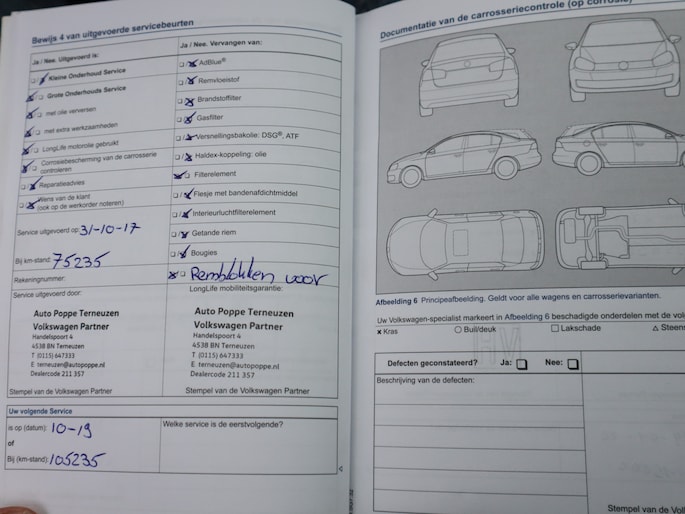 Bewijs 4 van uitgevoerde servicebeurten
Ja / Nee. Uitgevoerd is:
Kleine Onderhoud Service
Grote Onderhouds Service
met olie verversen
met extra werkzaamheden
LongLife motorolie gebruikt
Corrosiebescherming van de carrosserie
controleren
Reparatieadvies
Wens van de klant
(ook op de werkorder noteren)
Service uitgevoerd op: 31-10-17
Bij km-stand: 75235
Rekeningnummer:
Ja / Nee. Vervangen van:
AdBlue®
Remvloeistof
Brandstoffilter
Gasfilter
Versnellingsbakolie: DSG®, ATF
Haldex-koppeling: olie
Filterelement
Flesje met bandenafdichtmiddel
Interieurluchtfilterelement
Getande riem
Bougies
Remblokken voor
Service uitgevoerd door:
Auto Poppe Terneuzen
Volkswagen Partner
Handelspoort 4
4538 BN Terneuzen
T (0115) 647333
E terneuzen@autopoppe.nl
Dealercode 211 357
Stempel van de Volkswagen Partner
LongLife mobiliteitsgarantie:
Auto Poppe Terneuzen
Volkswagen Partner
Handelspoort 4
4538 BN Terneuzen
T (0115) 647333
E terneuzen@autopoppe.nl
Dealercode 211 357
Stempel van de Volkswagen Partner
Uw volgende Service
is op (datum): 10-19
of
Bij (km-stand): 105235
Welke service is de eerstvolgende?
Documentatie van de carrosseriecontrole (op corrosie)
Afbeelding 6 Principeafbeelding. Geldt voor alle wagens en carrosserievarianten.
Uw Volkswagen-specialist markeert in Afbeelding 6 beschadigde onderdelen met de
x Kras ○ Buil/deuk □ Lakschade △
Defecten geconstateerd? Ja: Nee:
Beschrijving van de defecten:
Stempel van de